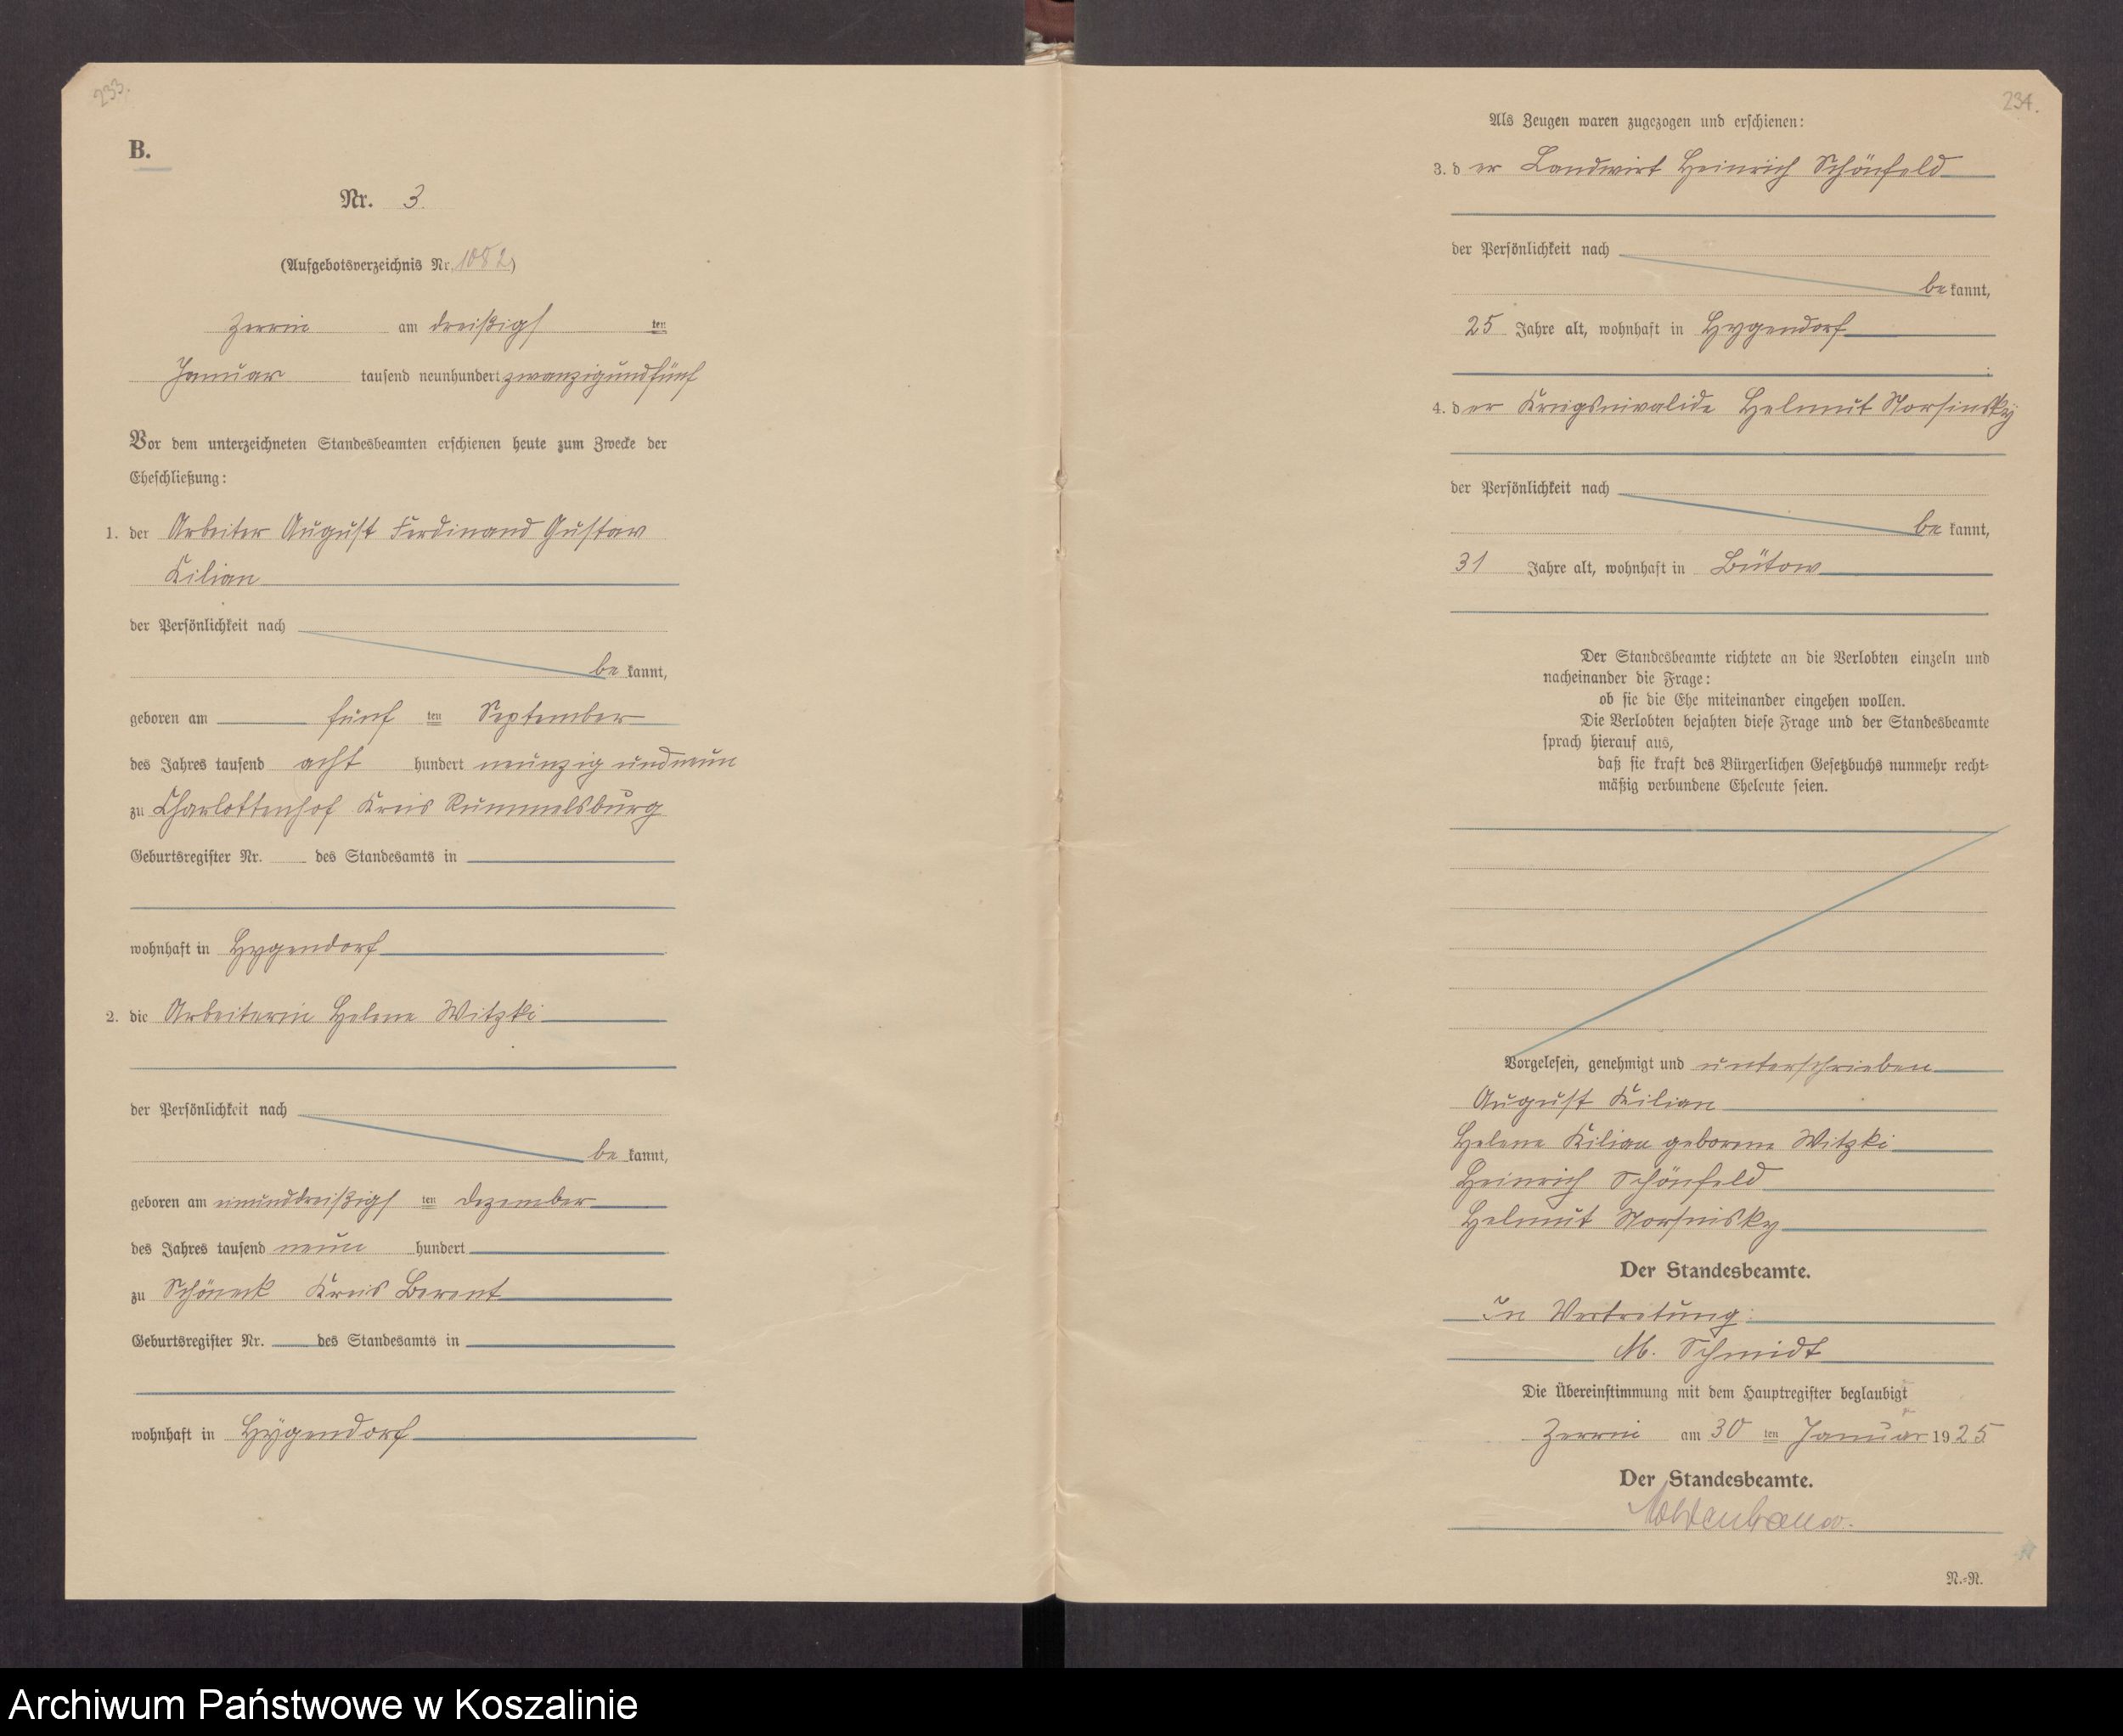 233.
B.
Nr. 3.
(Aufgebotsverzeichnis Nr. 1082)
Zerrin am dreißigsten
Januar tausend neunhundert zwanzigundfünf
Vor dem unterzeichneten Standesbeamten erschienen heute zum Zwecke der
Eheschließung:
1. der Arbeiter August Ferdinand Gustav
Kilian
der Persönlichkeit nach
bekannt,
geboren am fünften September
des Jahres tausend acht hundert neunzig und neun
zu Charlottenhof Kreis Rummelsburg
Geburtsregister Nr. des Standesamts in
wohnhaft in Hygendorf
2. die Arbeiterin Helene Witzki
der Persönlichkeit nach
bekannt,
geboren am einunddreißigsten Dezember
des Jahres tausend neun hundert
zu Schöneck Kreis Berent
Geburtsregister Nr. des Standesamts in
wohnhaft in Hygendorf
234.
Als Zeugen waren zugezogen und erschienen:
3. der Landwirt Heinrich Schönfeld
der Persönlichkeit nach
bekannt,
25 Jahre alt, wohnhaft in Hygendorf
4. der Kriegsinvalide Helmut
der Persönlichkeit nach
bekannt,
31 Jahre alt, wohnhaft in Bütow
Der Standesbeamte richtete an die Verlobten einzeln und
nacheinander die Frage:
ob sie die Ehe miteinander eingehen wollen.
Die Verlobten bejahten diese Frage und der Standesbeamte
sprach hierauf aus,
daß sie kraft des Bürgerlichen Gesetzbuchs nunmehr recht-
mäßig verbundene Eheleute seien.
Vorgelesen, genehmigt und unterschrieben
August Kilian
Helene Kilian geborene Witzki
Heinrich Schönfeld
Helmut
Der Standesbeamte.
In Vertretung:
M. Schmidt
Die Übereinstimmung mit dem Hauptregister beglaubigt
Zerrin am 30 ten Januar 1925
Der Standesbeamte.
N.-R.
Archiwum Państwowe w Koszalinie